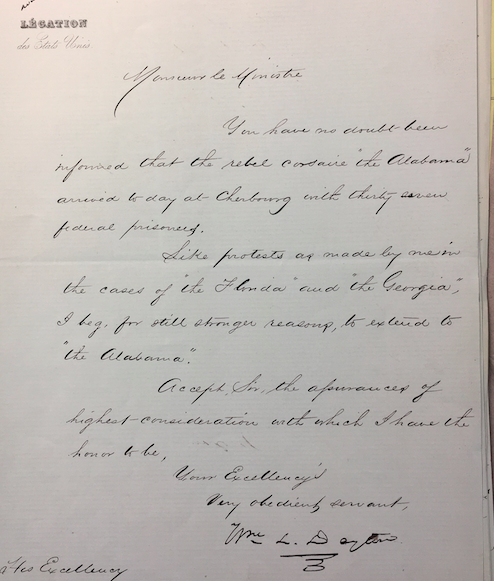 LÉGATION
des États Unies
Monsieur le Ministre
You have no doubt been
informed that the rebel corsaire "the Alabama"
arrived to day at Cherbourg with thirty seven
federal prisoners.
Like protests as made by me in
the cases of "the Florida" and "the Georgia",
I beg, for still stronger reasons, to extend to
"the Alabama".
Accept, Sir, the assurances of
highest consideration with which I have the
honor to be,
Your Excellency's
Very obedient servant,
Wm L. Dayton
His Excellency